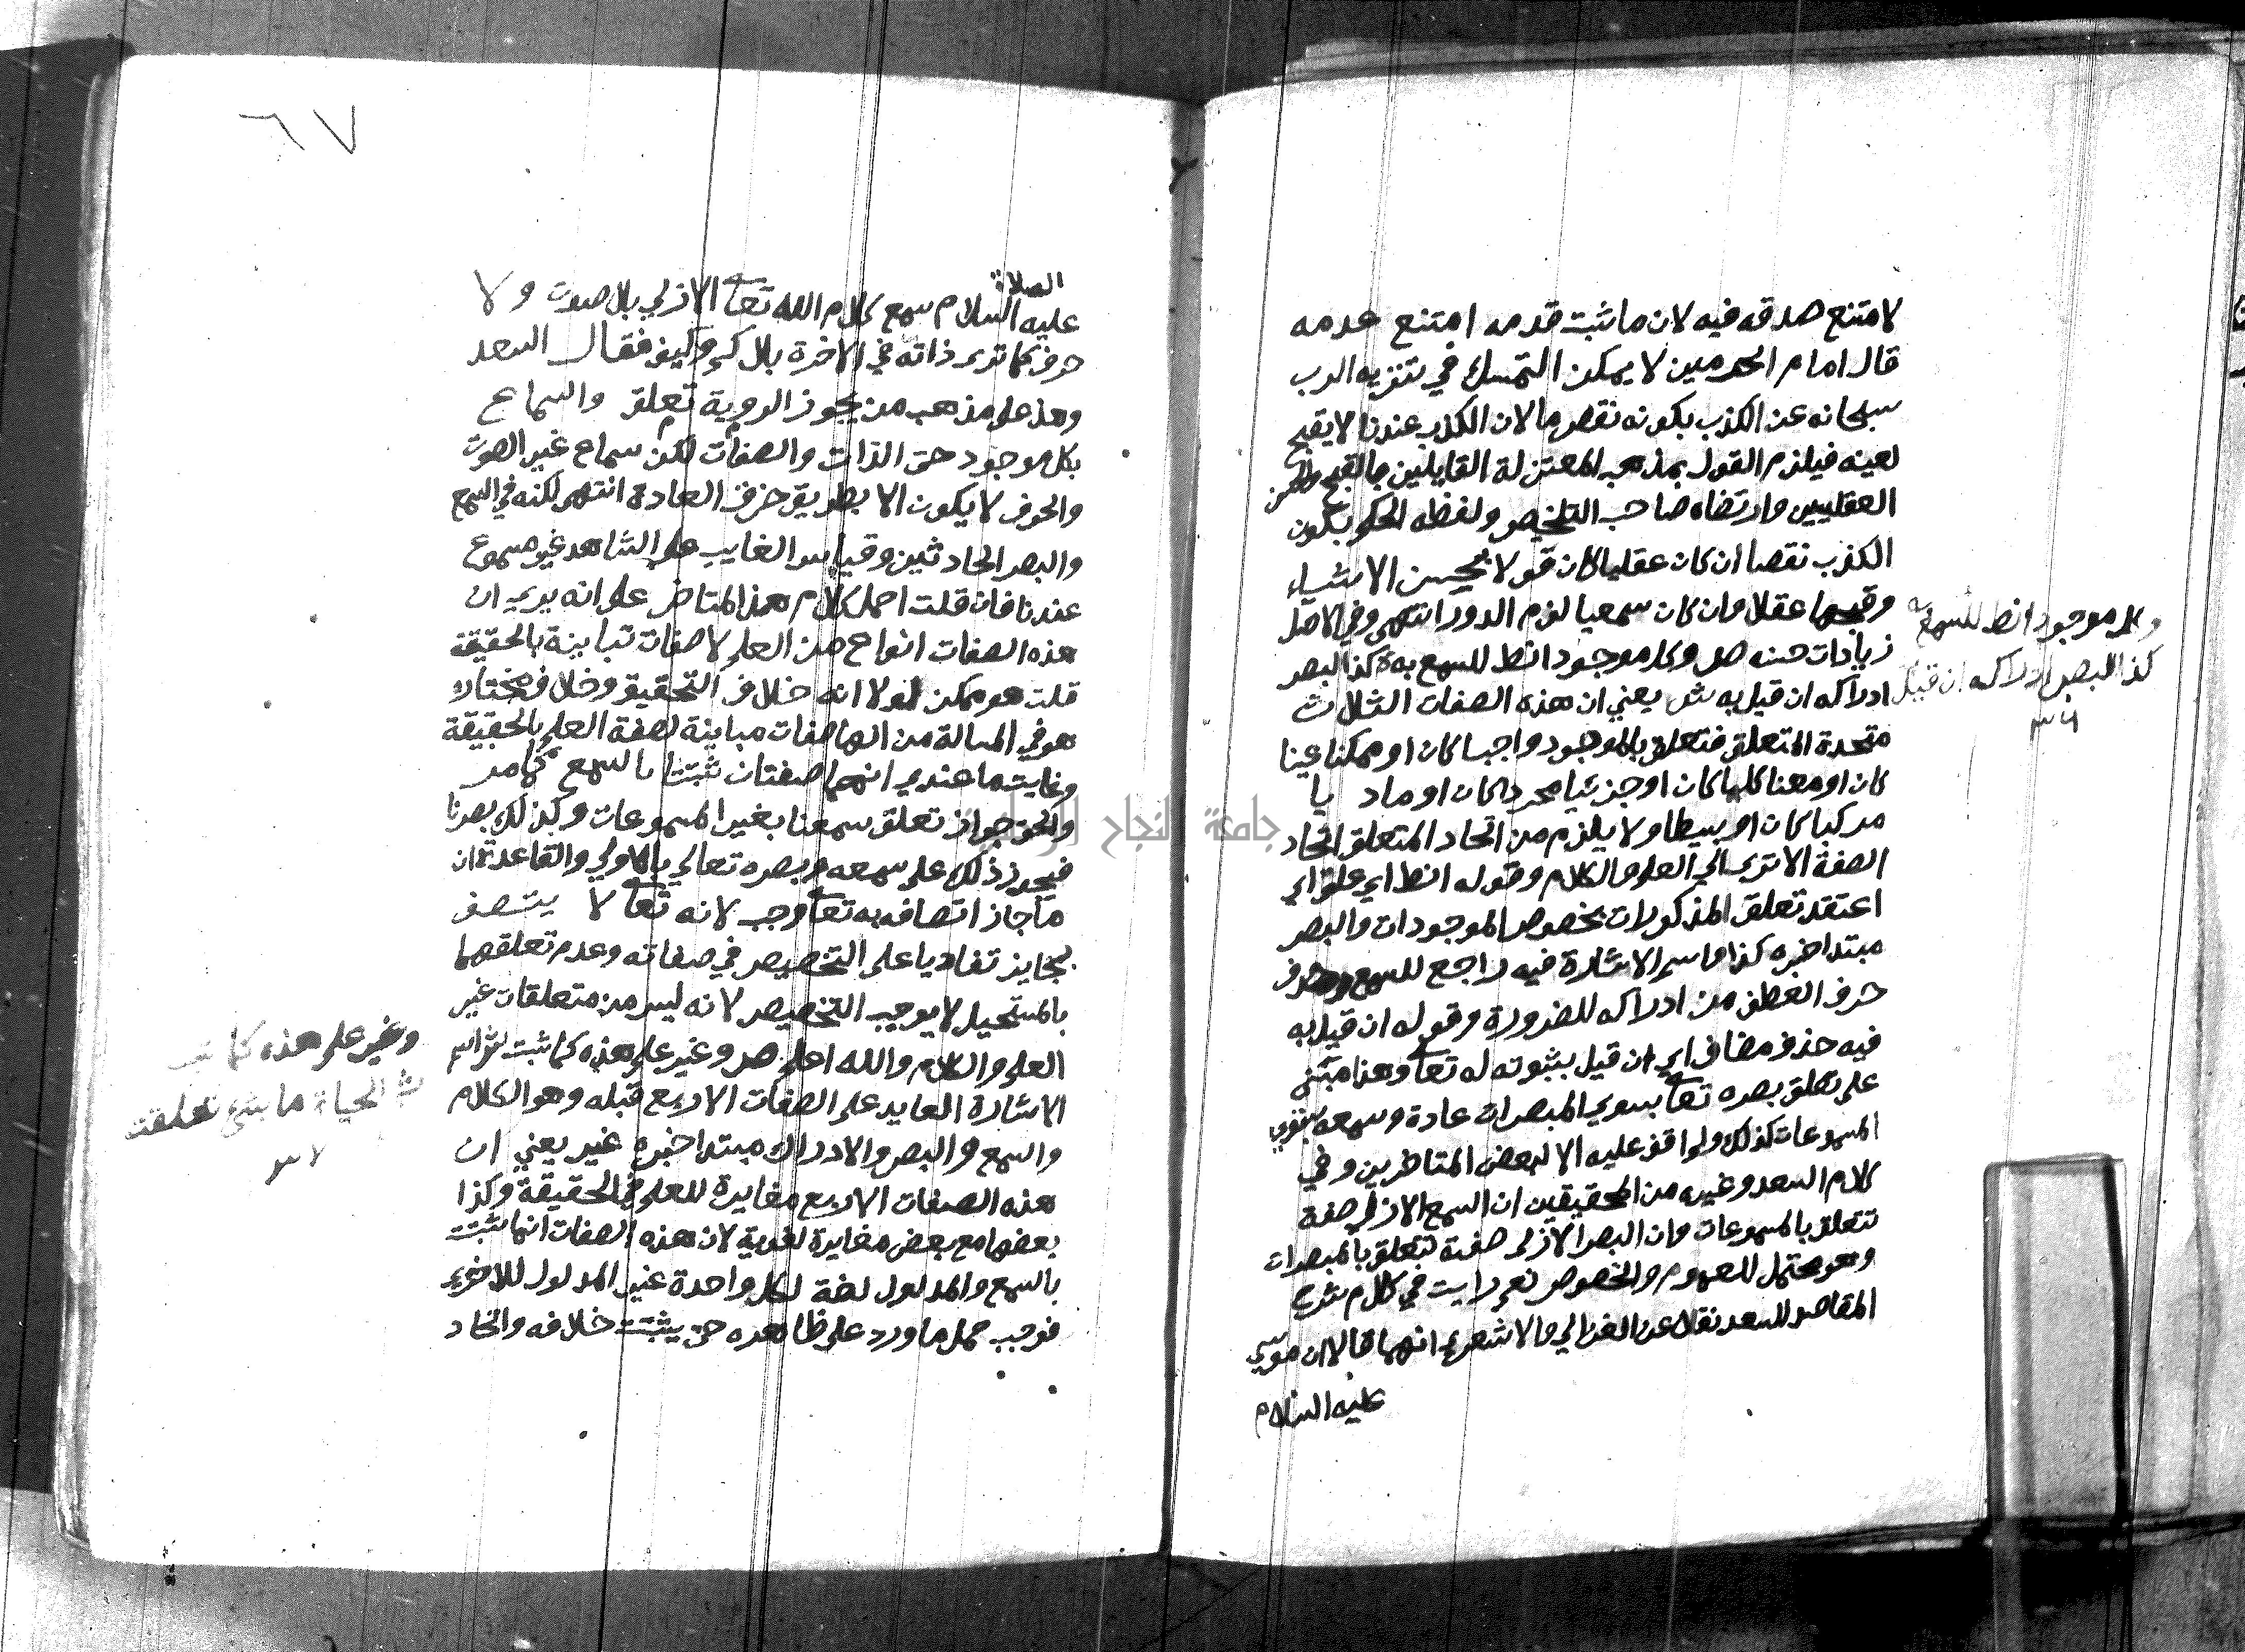 لامتنع صدقه فيه لان ما ثبت قدمه امتنع عدمه
قال امام الحرمين لا يمكن التمسك في تنزيه الرب
سبحانه عن الكذب بكونه نقصا لان الكذب عندنا لا يقبح
لعينه فيلزم القول بمذهب المعتزلة القايلين بالقبح والحسن
العقليين وارتضاه صاحب التلخيص ولفظه الحكم بكون
الكذب نقصا ان كان عقليا كان قولا بحسن الاشياء
وقبحها عقلا وان كان سمعيا لزم الدور انتهى وفي الاصل
زيادات حسنه ص وكل موجود انط للسمع به كذا البصر
ادراكه ان قيل به ش يعني ان هذه الصفات الثلاث
متحدة المتعلق فتعلق بالموجود واجبا كان او ممكنا عينا
كان او معنا كليا كان او جزئيا مجردا كان او ماديا
مركبا كان او بسيطا ولا يلزم من اتحاد المتعلق اتحاد
الصفة الا ترى الي العلم والكلام وقوله انط اي علق اي
اعتقد تعلق المذكورات بخصوص الموجودات والبصر
مبتدا خبره كذا واسم الاشارة فيه راجع للسمع وحذف
حرف العطف من ادراكه للضرورة وقوله ان قيل به
فيه حذف مضاف اي ان قيل بثبوته له تعا وهذا مبني
على تعلق بصره تعا بسوي المبصرات عادة وسمعه بسوي
المسموعات كذلك ولم اقف عليه الا لبعض المتاخرين وفي
كلام السعد وغيره من المحققين ان السمع الازلي صفة
تتعلق بالمسموعات وان البصر الازلي صفة تتعلق بالمبصرات
وهو محتمل للعموم والخصوص نعم رايت في كلام شرح
المقاصد للسعد نقلا عن الغزالي والاشعري انهما قالا ان موسي
عليه السلام
وكل موجود انط للسمع به
كذا البصر ادراكه ان قيل
٣٦
٦٧
الصلاة
عليه السلام سمع كلام الله تعا الازلي بلا صوت ولا
حرف كما ترى ذاته في الاخرة بلا كم وكيف فقال السعد
وهذ على مذهب من يجوز الروية تعلق والسماع
بكل موجود حتى الذات والصفات لكن سماع غير الصوت
والحرف لا يكون الا بطريق خرق العادة انتهى لكنه في السمع
والبصر الحادثين وقياس الغايب على الشاهد غير مسموع
عندنا فان قلت احمل كلام هذا المتاخر على انه يرى ان
هذه الصفات انواع من العلم لا صفات تباينه بالحقيقة
قلت هو ممكن لولا انه خلاف التحقيق وخلاف مختاره
هو في المسالة من انها صفات مباينة لصفة العلم بالحقيقة
وغايت ما عندي انهما صفتان ثبتتا بالسمع كما مر
والحق جواز تعلق سمعنا بغير المسموعات وكذلك بصرنا
فيجوز ذلك على سمعه وبصره تعالي بالاولي والقاعدة ان
ما جاز اتصافه به تعا وجب لانه تعا لا يتصف
بجايز تفاديا على التخصيص في صفاته وعدم تعلقهما
بالمستحيل لا يوجب التخصيص لانه ليس من متعلقات غير
العلم والكلام والله اعلم ص وغير علم هذه كما ثبت ش اسم
الاشارة العايد على الصفات الاربع قبله وهو الكلام
والسمع والبصر والادراك مبتدا خبره غير يعني ان
هذه الصفات الاربع مغايرة للعلم في الحقيقة وكذا
بعضها مع بعض مغايرة لغوية لان هذه الصفات انما ثبتت
بالسمع والمدلول لغة لكل واحدة غير المدلول للاخرى
فوجب حمل ما ورد على ظاهره حتى يثبت خلافه واتحاد
وغير علم هذه كما ثبت
ثم الحياة ما بشئ تعلقت
٣٧
جامعة النجاح الوطنية